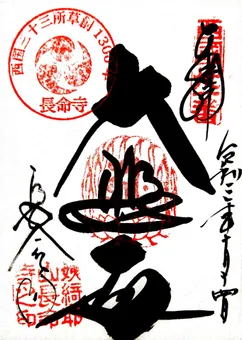 奉拝
令和二年十月
大悲殿
西国三十三所草創1300年
長命寺
長命寺
姨綺耶
山長命
寺之印